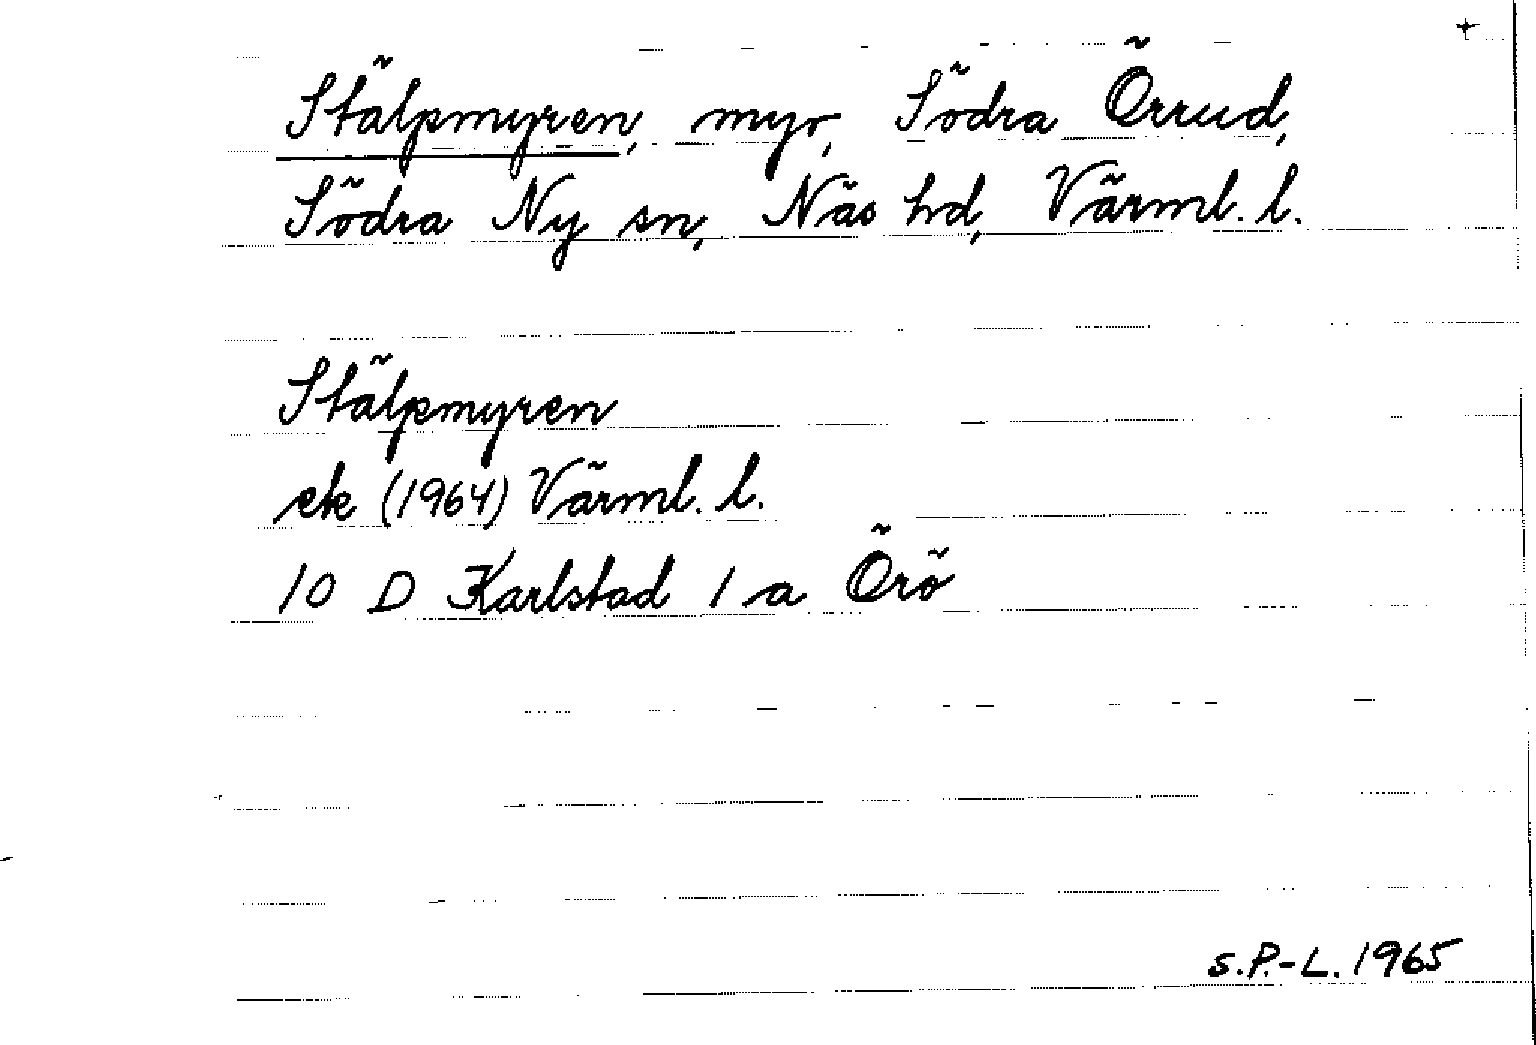 Stälpmyren, myr, Södra Örrud,
Södra Ny sn, Näs hd, Värml. l.
Stälpmyren
ek (1964) Värml. l.
10 D Karlstad 1 a Örö
S.P.-L. 1965